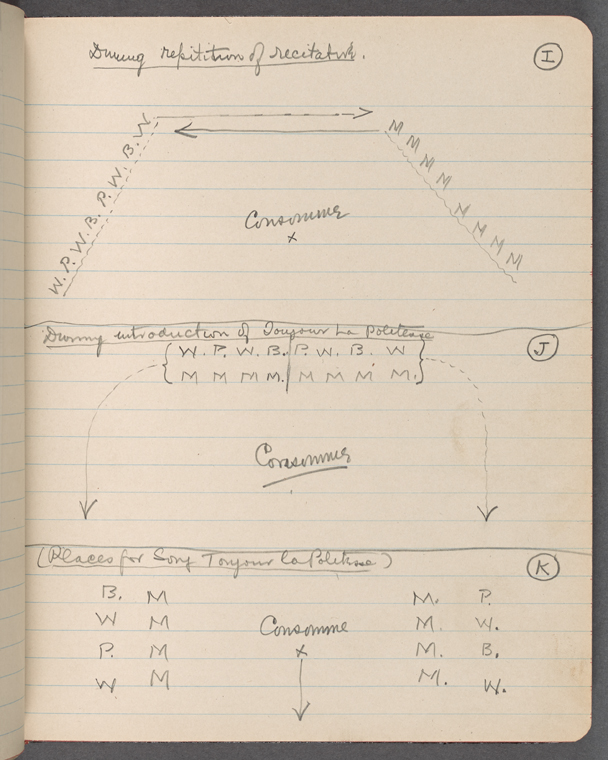 During repitition of recitative.
I
W. P. W. B. P. W. B. W
M M M M M M M M
Consomme
x
During introduction of Toujour La Politesse
J
W. P. W. B. P. W. B. W
M M M M. M M M M.
Consomme
(Places for Song Toujour la Politesse)
K
B. M M. P.
W M M. W.
Consomme
P. M M. B.
x
W M M. W.